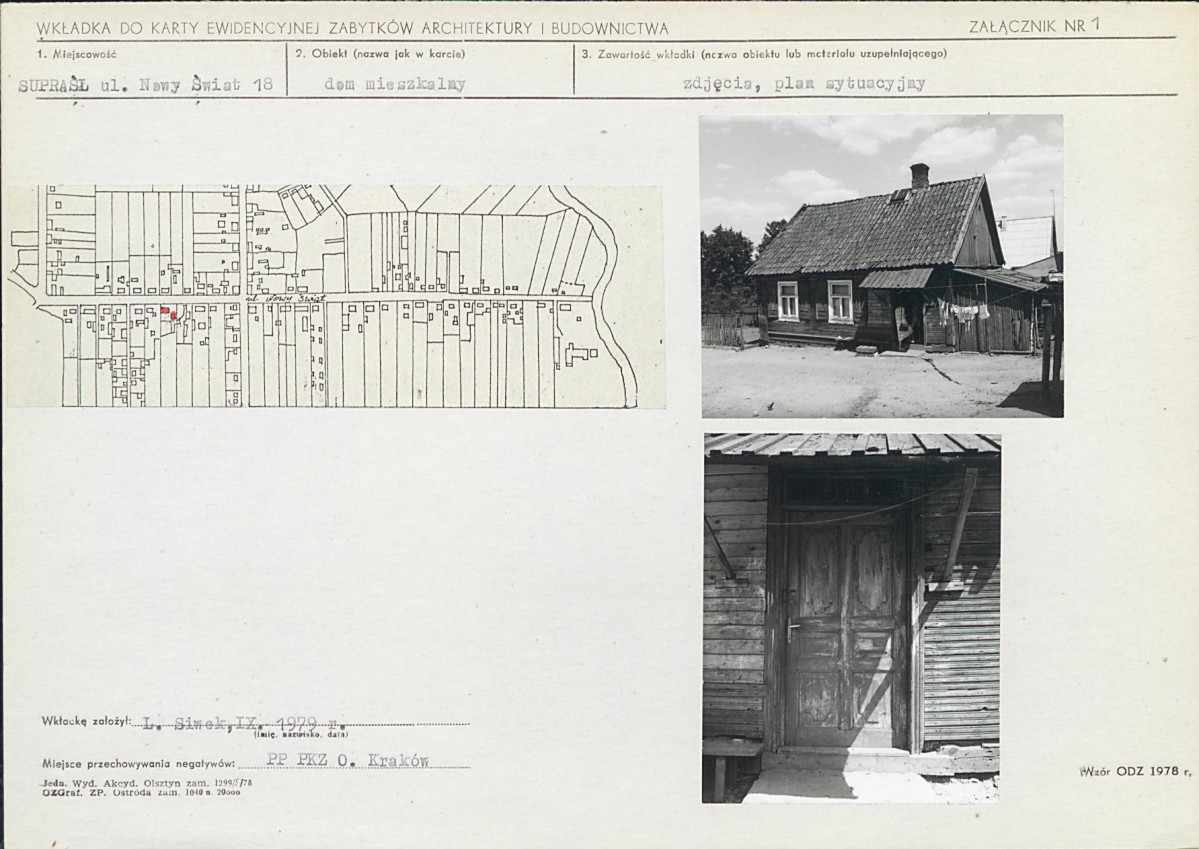 WKŁADKA DO KARTY EWIDENCYJNEJ ZABYTKÓW ARCHITEKTURY I BUDOWNICTWA
ZAŁĄCZNIK NR 1
1. Miejscowość
SUPRAŚL ul. Nowy Świat 18
2. Obiekt (nazwa jak w karcie)
dom mieszkalny
3. Zawartość wkładki (nazwa obiektu lub materiału uzupełniającego)
zdjęcia, plan sytuacyjny
ul. Nowy Świat
Wkładkę założył: L. Siwek, IX. 1979 r.
(imię, nazwisko, data)
Miejsce przechowywania negatywów: PP PKZ O. Kraków
Jedn. Wyd. Akcyd. Olsztyn zam. 1299/5/78
OZGraf. ZP. Ostróda zam. 1040 n. 20000
Wzór ODZ 1978 r.